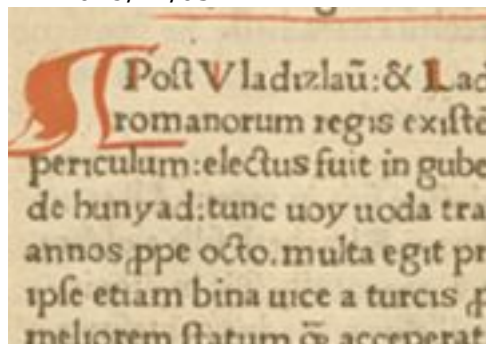 ¶ Post Vladizlaū:& Lad
romanorum regis existē
periculum:electus fuit in gube
de hunyad:tunc uoy uoda tra
annos ꝓpe octo. multa egit pr
ipse etiam bina uice a turcis ꝓ
meliorem statum q̄ acceperat